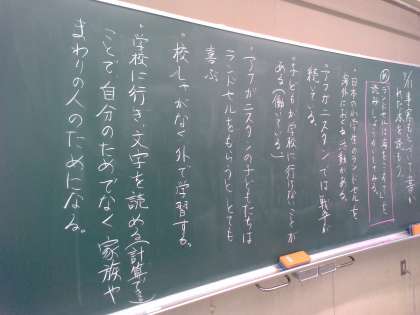 ・日本の小学生のランドセルを、
海外におくる活動がある。
・アフガニスタンでは戦争が
続いている。
・子どもが学校に行けないことが
ある(働いている)
・アフガニスタンの子どもたちは
ランドセルをもらうと、とても
喜ぶ
・校しゃがなく外で学習する。
・学校に行き、文字を読める(計算できる)
ことで、自分のためでなく家族や
まわりの人のためになる。